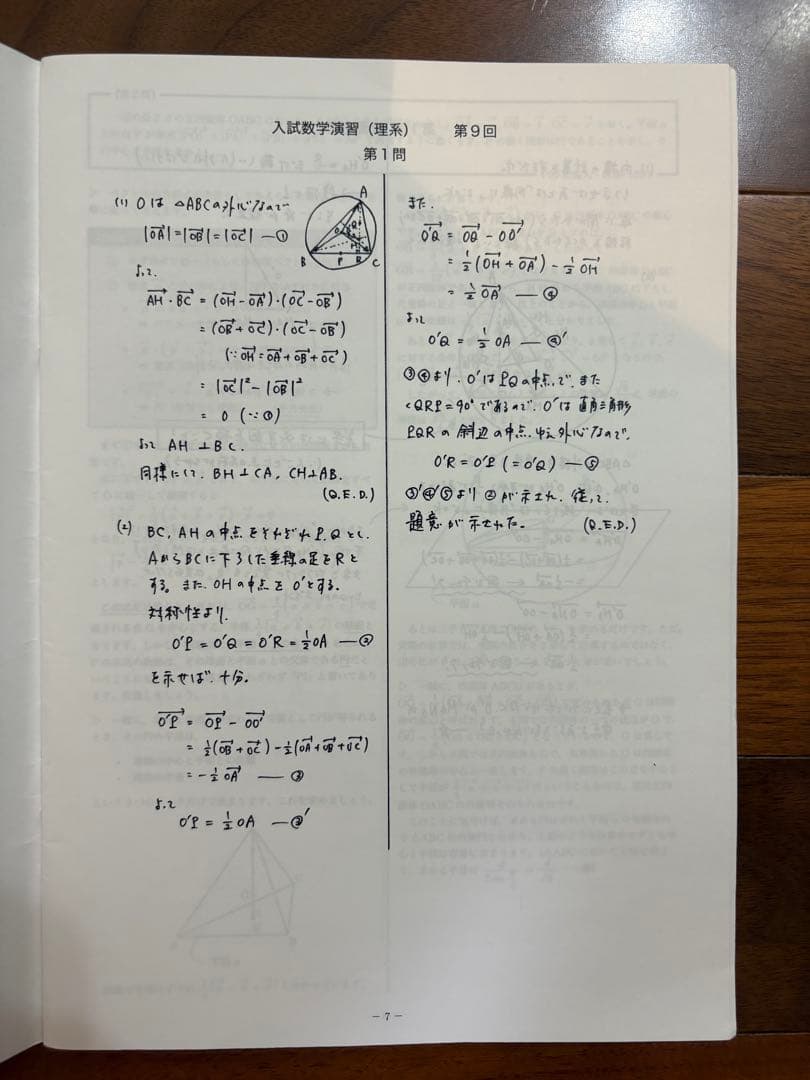 入試数学演習（理系） 第９回
第１問
(1) Oは △ABCの外心なので
|OA→|=|OB→|=|OC→| —①
よって
AH→・BC→ = (OH→−OA→)・(OC→−OB→)
= (OB→+OC→)・(OC→−OB→)
(∵OH→=OA→+OB→+OC→)
= |OC→|²−|OB→|²
= 0 (∵①)
よって AH⊥BC.
同様にして、BH⊥CA, CH⊥AB.
(Q.E.D.)
(2) BC, AHの中点をそれぞれP,Qとし、
AからBCに下ろした垂線の足をRと
する。また、OHの中点をO'とする。
対称性より、
O'P=O'Q=O'R=½OA —②
を示せば、十分。
O'P→ = OP→−OO'→
= ½(OB→+OC→)−½(OA→+OB→+OC→)
= −½OA→ —③
よって
O'P = ½OA —③'
A
O
Q
H
B
P
R
C
また、
O'Q→ = OQ→−OO'→
= ½(OH→+OA→)−½OH→
= ½OA→ —④
よって
O'Q = ½OA —④'
③④より、O'はPQの中点で、また
∠QRP=90°であるので、O'は直角三角形
PQRの斜辺の中点、ゆえ外心なので、
O'R=O'P(=O'Q) —⑤
③'④'⑤より②が示され、従って、
題意が示された。 (Q.E.D.)
− 7 −